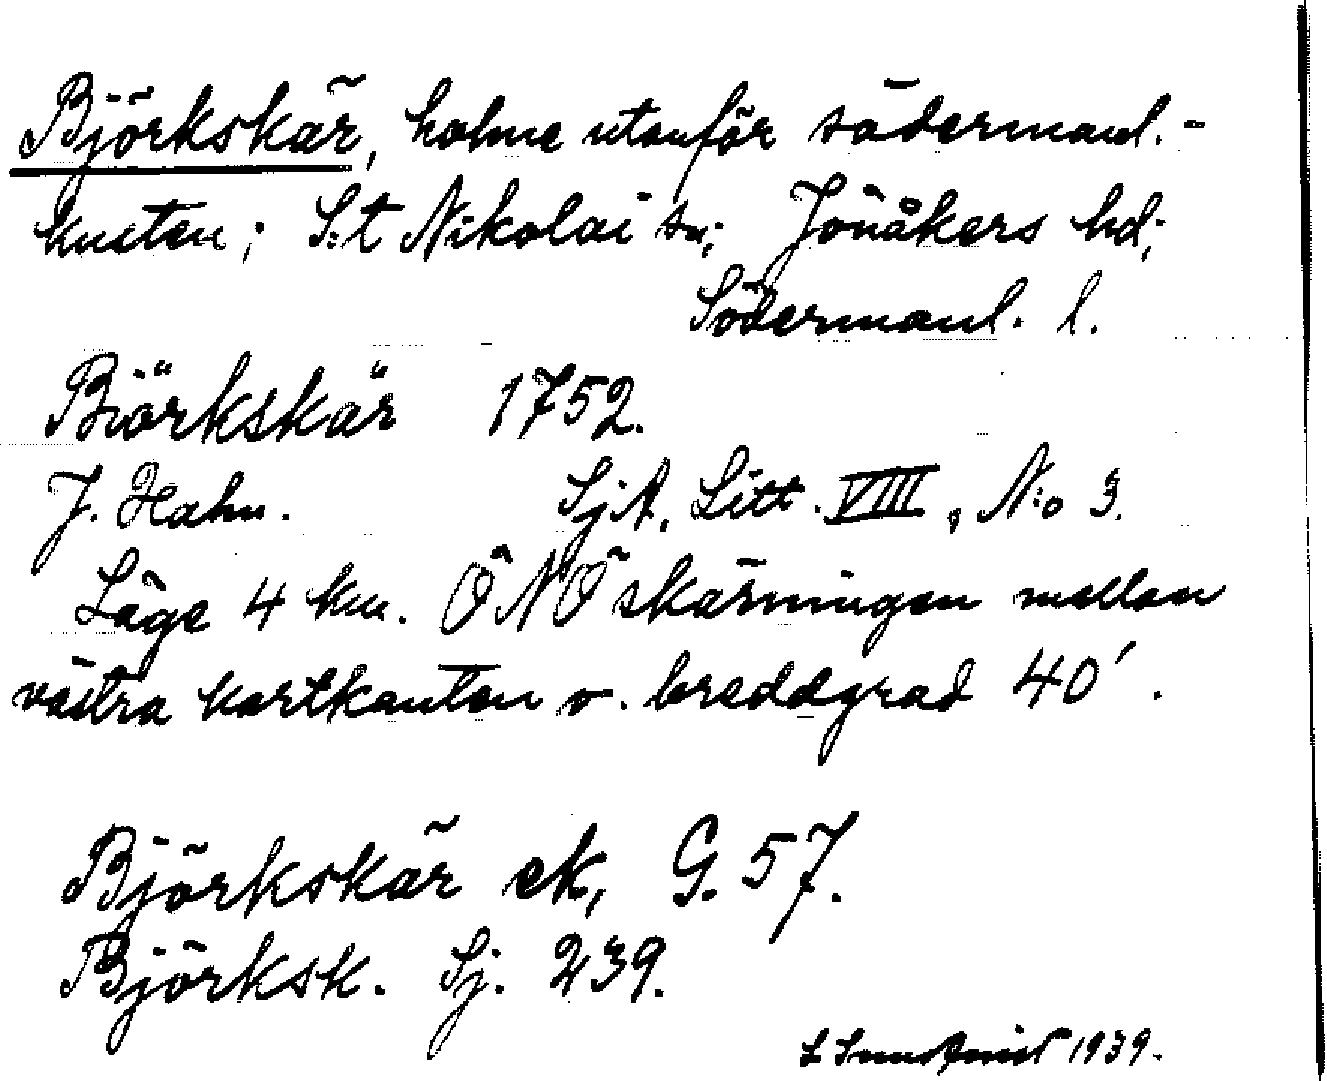 Björkskär, holme utanför södermanl.-
kusten; S:t Nikolai sn; Jönåkers hd;
Södermanl. l.
Biörkskär 1752.
J. Hahn. SjA. Litt. VIII, N:o 3.
Läge 4 km. ÖNÖ skärningen mellan
västra kartkanten o. breddgrad 40'.
Björkskär ek, G. 57.
Björksk. Sj. 239.
1939.